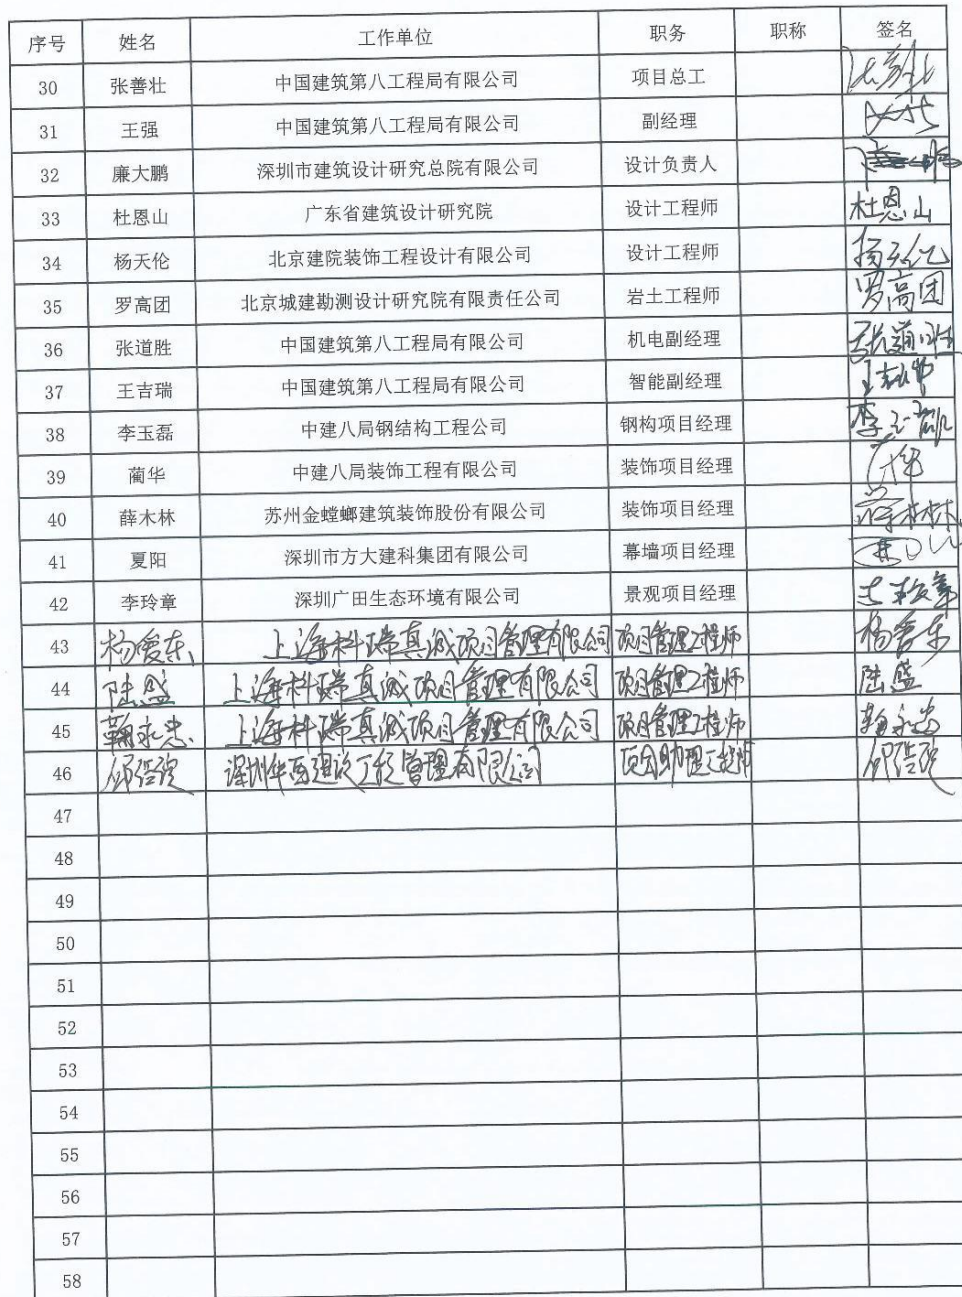 序号 姓名 工作单位 职务 职称 签名
30 张善壮 中国建筑第八工程局有限公司 项目总工
31 王强 中国建筑第八工程局有限公司 副经理
32 廉大鹏 深圳市建筑设计研究总院有限公司 设计负责人
33 杜恩山 广东省建筑设计研究院 设计工程师 杜恩山
34 杨天伦 北京建院装饰工程设计有限公司 设计工程师 杨天伦
35 罗高团 北京城建勘测设计研究院有限责任公司 岩土工程师 罗高团
36 张道胜 中国建筑第八工程局有限公司 机电副经理 张道胜
37 王吉瑞 中国建筑第八工程局有限公司 智能副经理
38 李玉磊 中建八局钢结构工程公司 钢构项目经理 李玉磊
39 蔺华 中建八局装饰工程有限公司 装饰项目经理
40 薛木林 苏州金螳螂建筑装饰股份有限公司 装饰项目经理 薛木林
41 夏阳 深圳市方大建科集团有限公司 幕墙项目经理
42 李玲章 深圳广田生态环境有限公司 景观项目经理
43 杨爱东 上海科瑞真诚项目管理有限公司 项目管理工程师 杨爱东
44 陆盛 上海科瑞真诚项目管理有限公司 项目管理工程师 陆盛
45 鞠永忠 上海科瑞真诚项目管理有限公司 项目管理工程师 鞠永忠
46 深圳华西建设工程管理有限公司
47
48
49
50
51
52
53
54
55
56
57
58